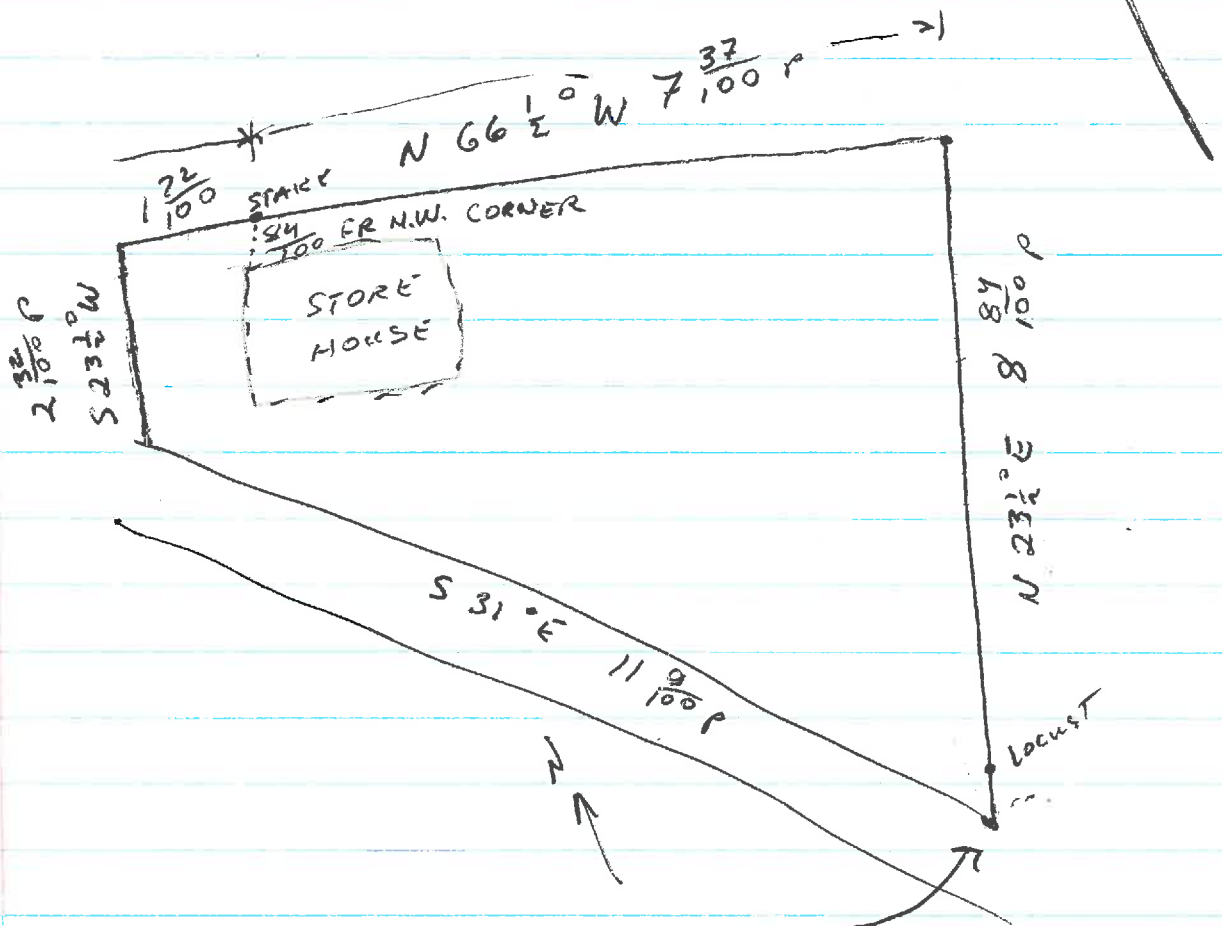 N 66 1/2° W 7 37/100 P
1 22/100
STAKE
84/100 FR N.W. CORNER
STORE
HOUSE
2 32/100 P
S 23 1/2° W
N 23 1/2° E 8 84/100 P
S 31° E 11 9/100 P
LOCUST
N